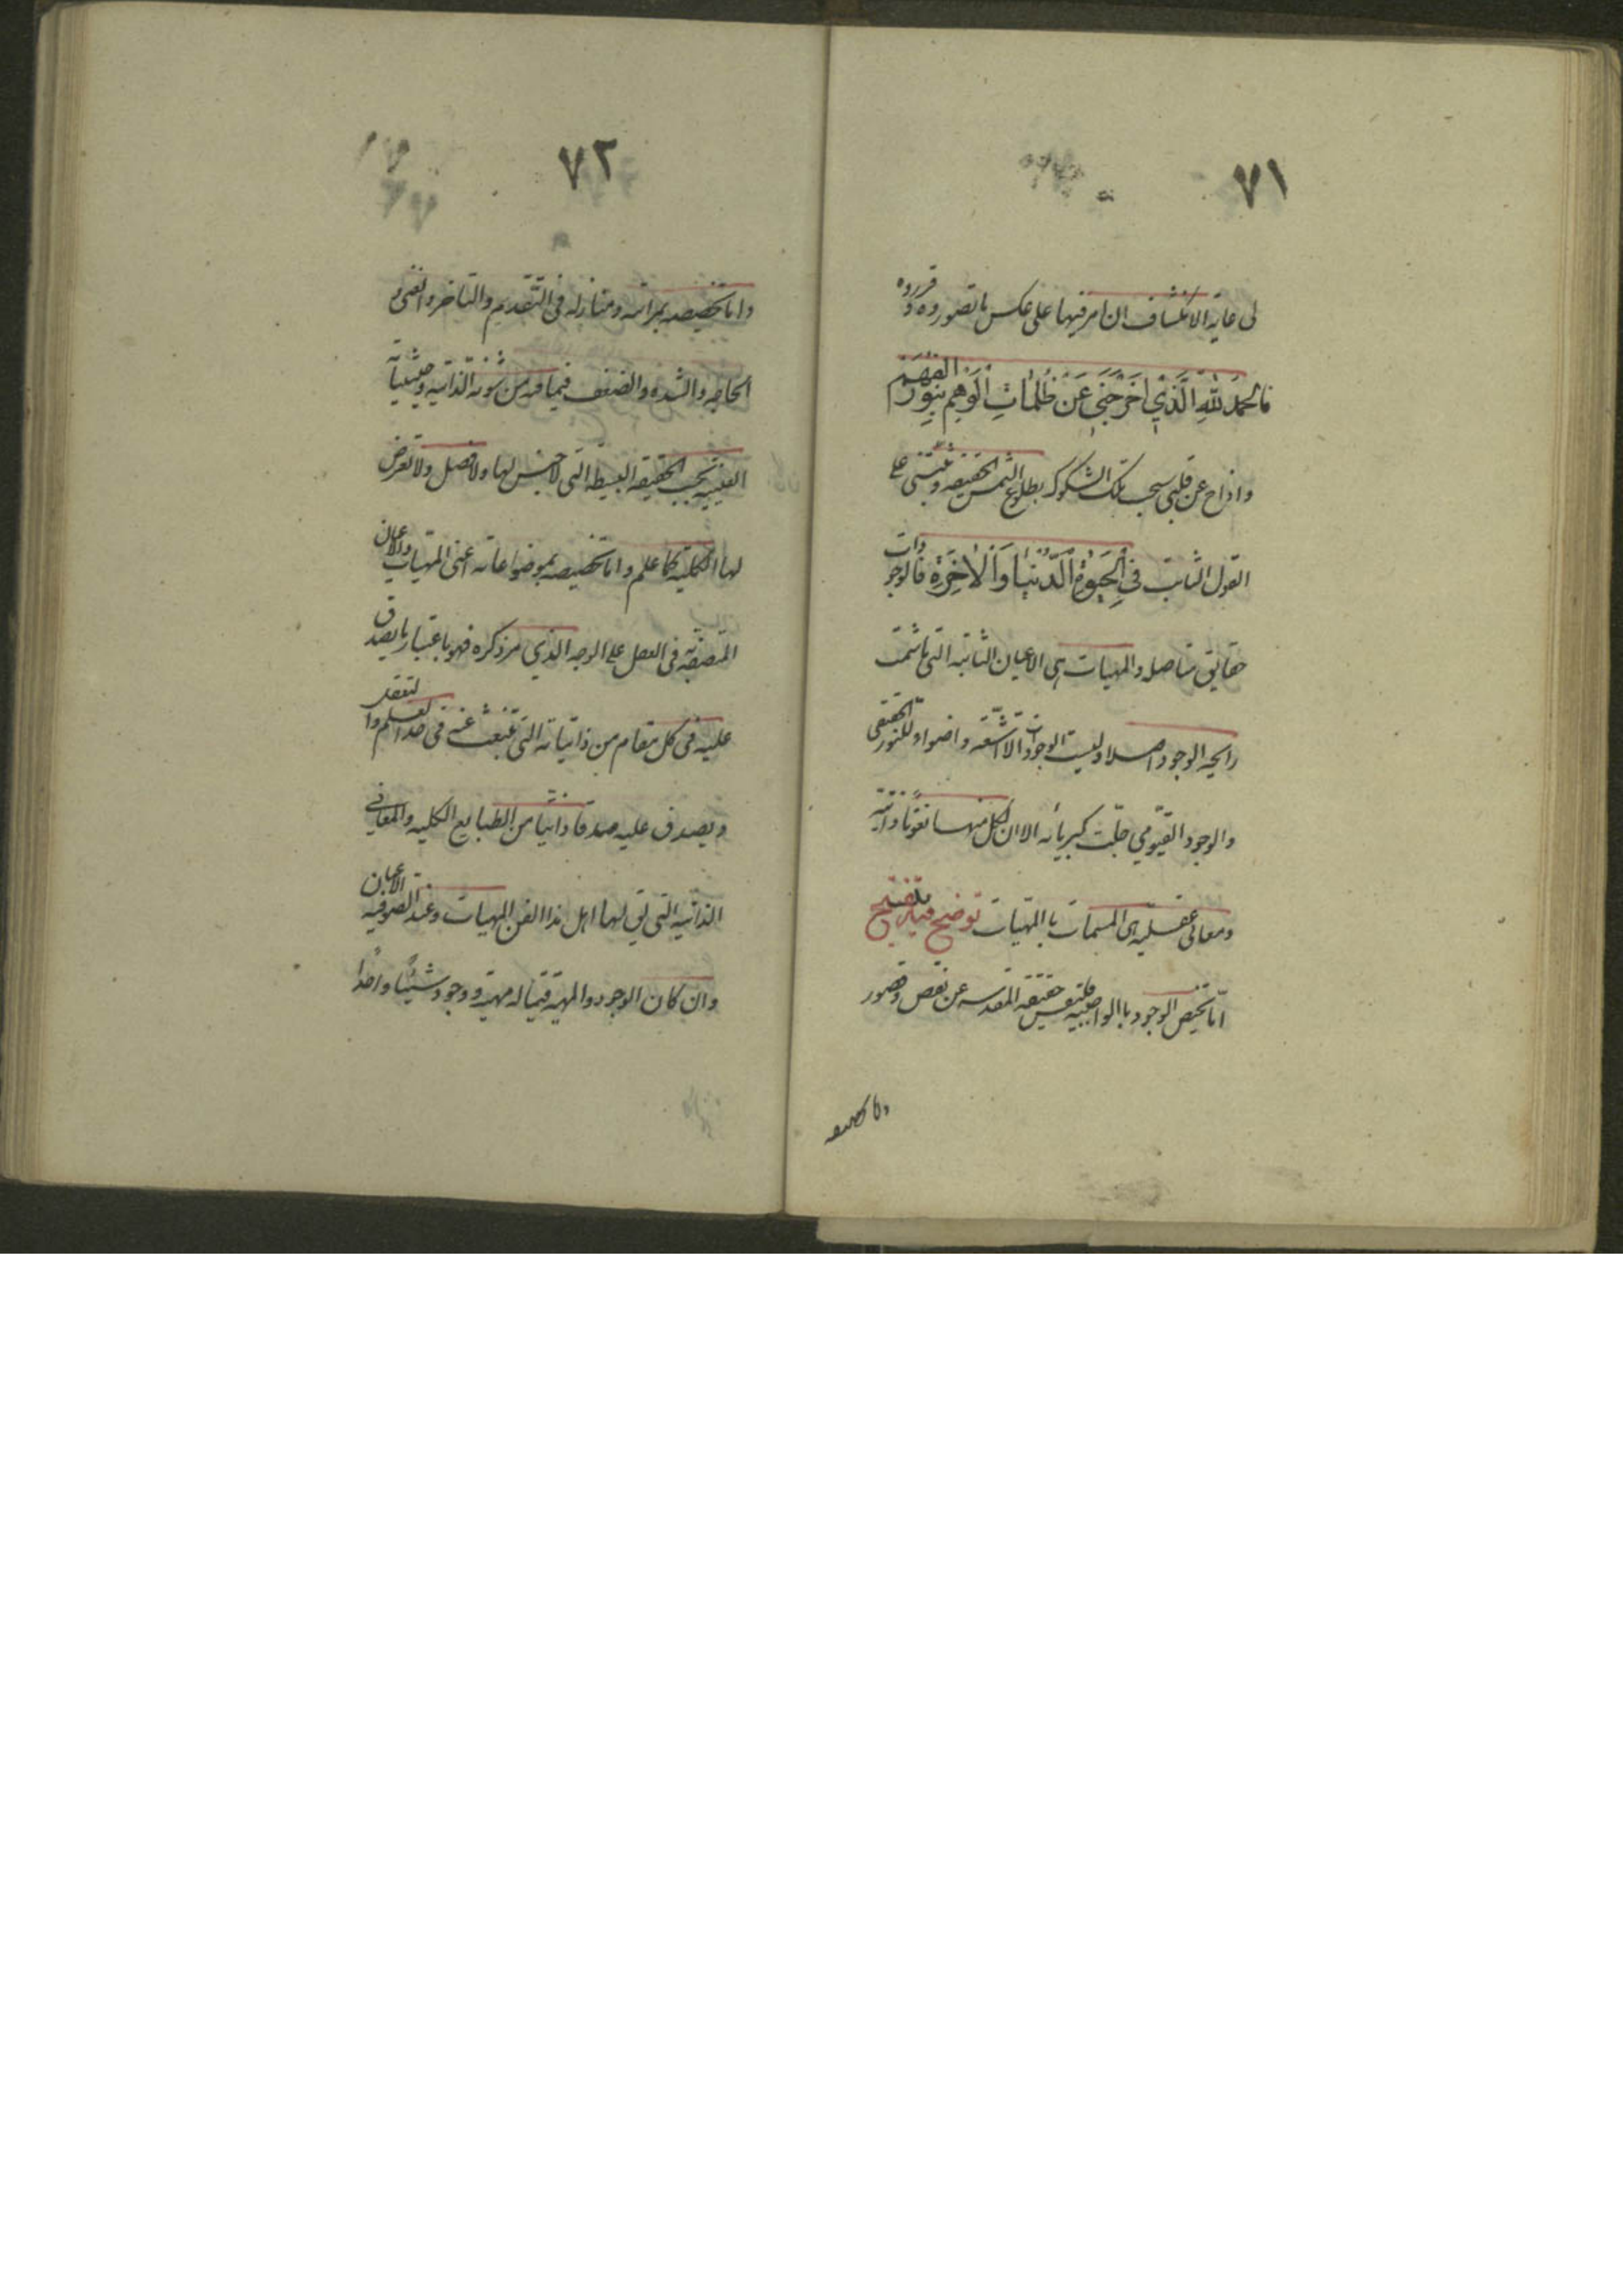 ٧١
لى غاية الانكشاف ان الامر فيها على عكس ما تصوروه وقرروه
فالحمد لله الذي اخرجني عن ظلمات الوهم بنور الفهم
وازاح عن قلبي سحب تلك الشكوك بطلوع الشمس الحقيقه وثبتني على
القول الثابت في الحيوة الدنيا والاخرة فالوجودات
حقايق متاصله والمهيات هى الاعيان الثابته التى ما شمت
رايحه الوجود اصلا وليست الوجودات الا اشعه واضواء للنور الحقيقى
والوجود القيومي جلت كبريائه الا ان لكل منها نعوتا ذاتية
ومعانى عقليه هى المسمات بالمهيات توضيح فيه تنقيح
اما تخصيص الوجود بالواجبيه فبنفس حقيقته المقدسه عن نقص وقصور
واما تخصيصه
٧٢
واما تخصيصه بمراتبه ومنازله فى التقديم والتاخر والغنى و
الحاجه والشده والضعف فبما فيه من شؤنه الذاتيه وحيثياته
العينيه بحسب الحقيقه البسيطه التى لا جنس لها ولا فصل ولا تعرض
لها الكليه كما علم واما تخصيصه بموضوعاته اعنى المهيات والاعيان
المتصفه به فى العقل على الوجه الذي مر ذكره فهو باعتبار ما يصدق
عليه فى كل مقام من ذاتياته التى تنبعث عنه فى حد العلم والتعقل
ويصدق عليه صدقا ذاتيا من الطبايع الكليه والمعانى
الذاتيه التى يق لها اهل هذا الفن المهيات وعند الصوفيه الاعيان
وان كان الوجود والمهيه فيما له مهيه ووجود شيئا واحدا